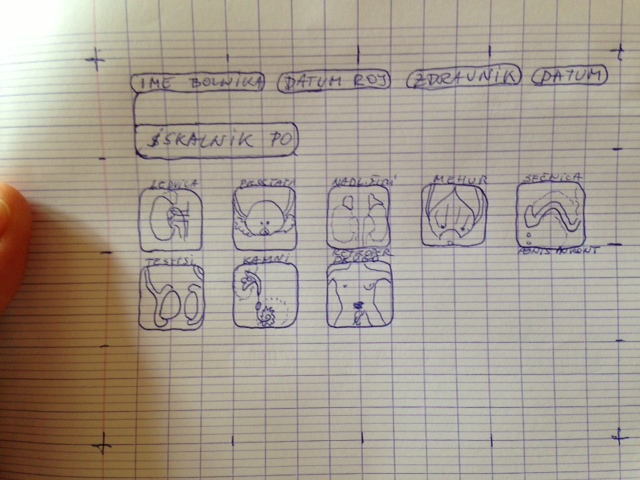 IME BOLNIKA DATUM ROJ ZDRAVNIK DATUM
ISKALNIK PO
LEDVICA PROSTATA NADLEDVI MEHUR SEČNICA
PENIS A FRONT
TESTISI KAMNI